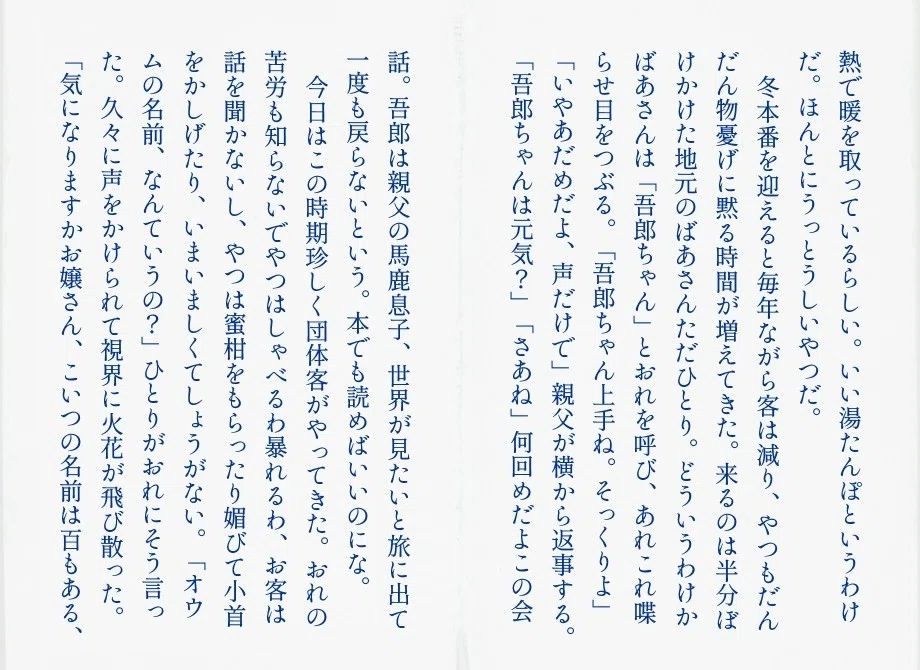 熱で暖を取っているらしい。いい湯たんぽというわけ
だ。ほんとにうっとうしいやつだ。
冬本番を迎えると毎年ながら客は減り、やつもだん
だん物憂げに黙る時間が増えてきた。来るのは半分ぼ
けかけた地元のばあさんただひとり。どういうわけか
ばあさんは「吾郎ちゃん」とおれを呼び、あれこれ喋
らせ目をつぶる。「吾郎ちゃん上手ね。そっくりよ」
「いやあだめだよ、声だけで」親父が横から返事する。
「吾郎ちゃんは元気？」「さあね」何回めだよこの会
話。吾郎は親父の馬鹿息子、世界が見たいと旅に出て
一度も戻らないという。本でも読めばいいのにな。
今日はこの時期珍しく団体客がやってきた。おれの
苦労も知らないでやつはしゃべるわ暴れるわ、お客は
話を聞かないし、やつは蜜柑をもらったり媚びて小首
をかしげたり、いまいましくてしょうがない。「オウ
ムの名前、なんていうの？」ひとりがおれにそう言っ
た。久々に声をかけられて視界に火花が飛び散った。
「気になりますかお嬢さん、こいつの名前は百もある、